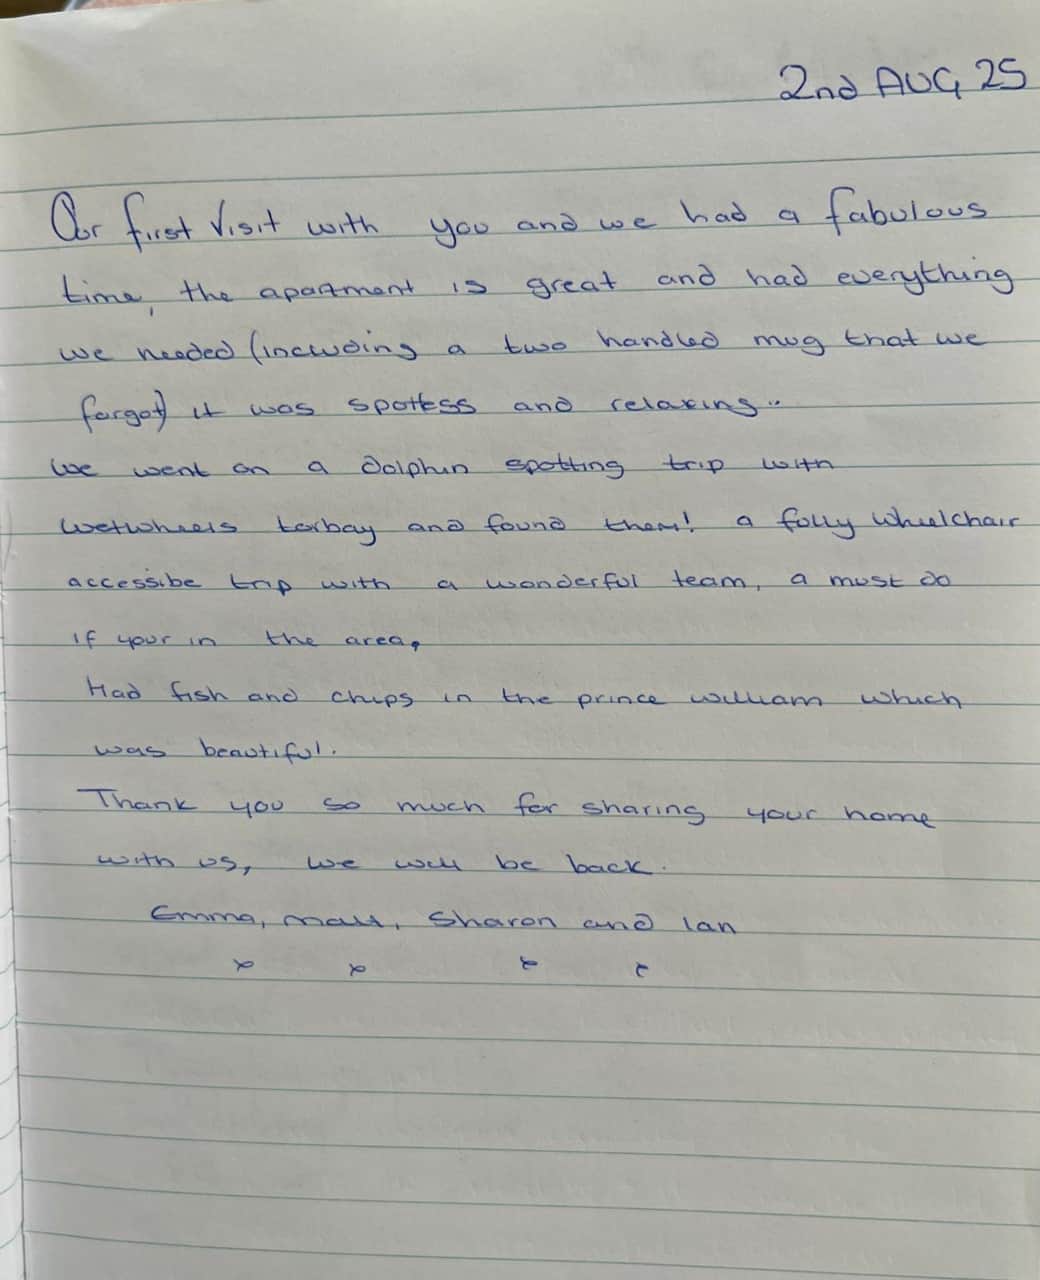 2nd AUG 25
Our first visit with you and we had a fabulous
time, the apartment is great and had everything
we needed (including a two handled mug that we
forgot) it was spotless and relaxing..
We went on a dolphin spotting trip with
wetwheels torbay and found them! a fully wheelchair
accessibe trip with a wonderful team, a must do
if your in the area,
Had fish and chips in the prince william which
was beautiful.
Thank you so much for sharing your home
with us, we will be back.
Emma, matt, Sharon and Ian
x x x x